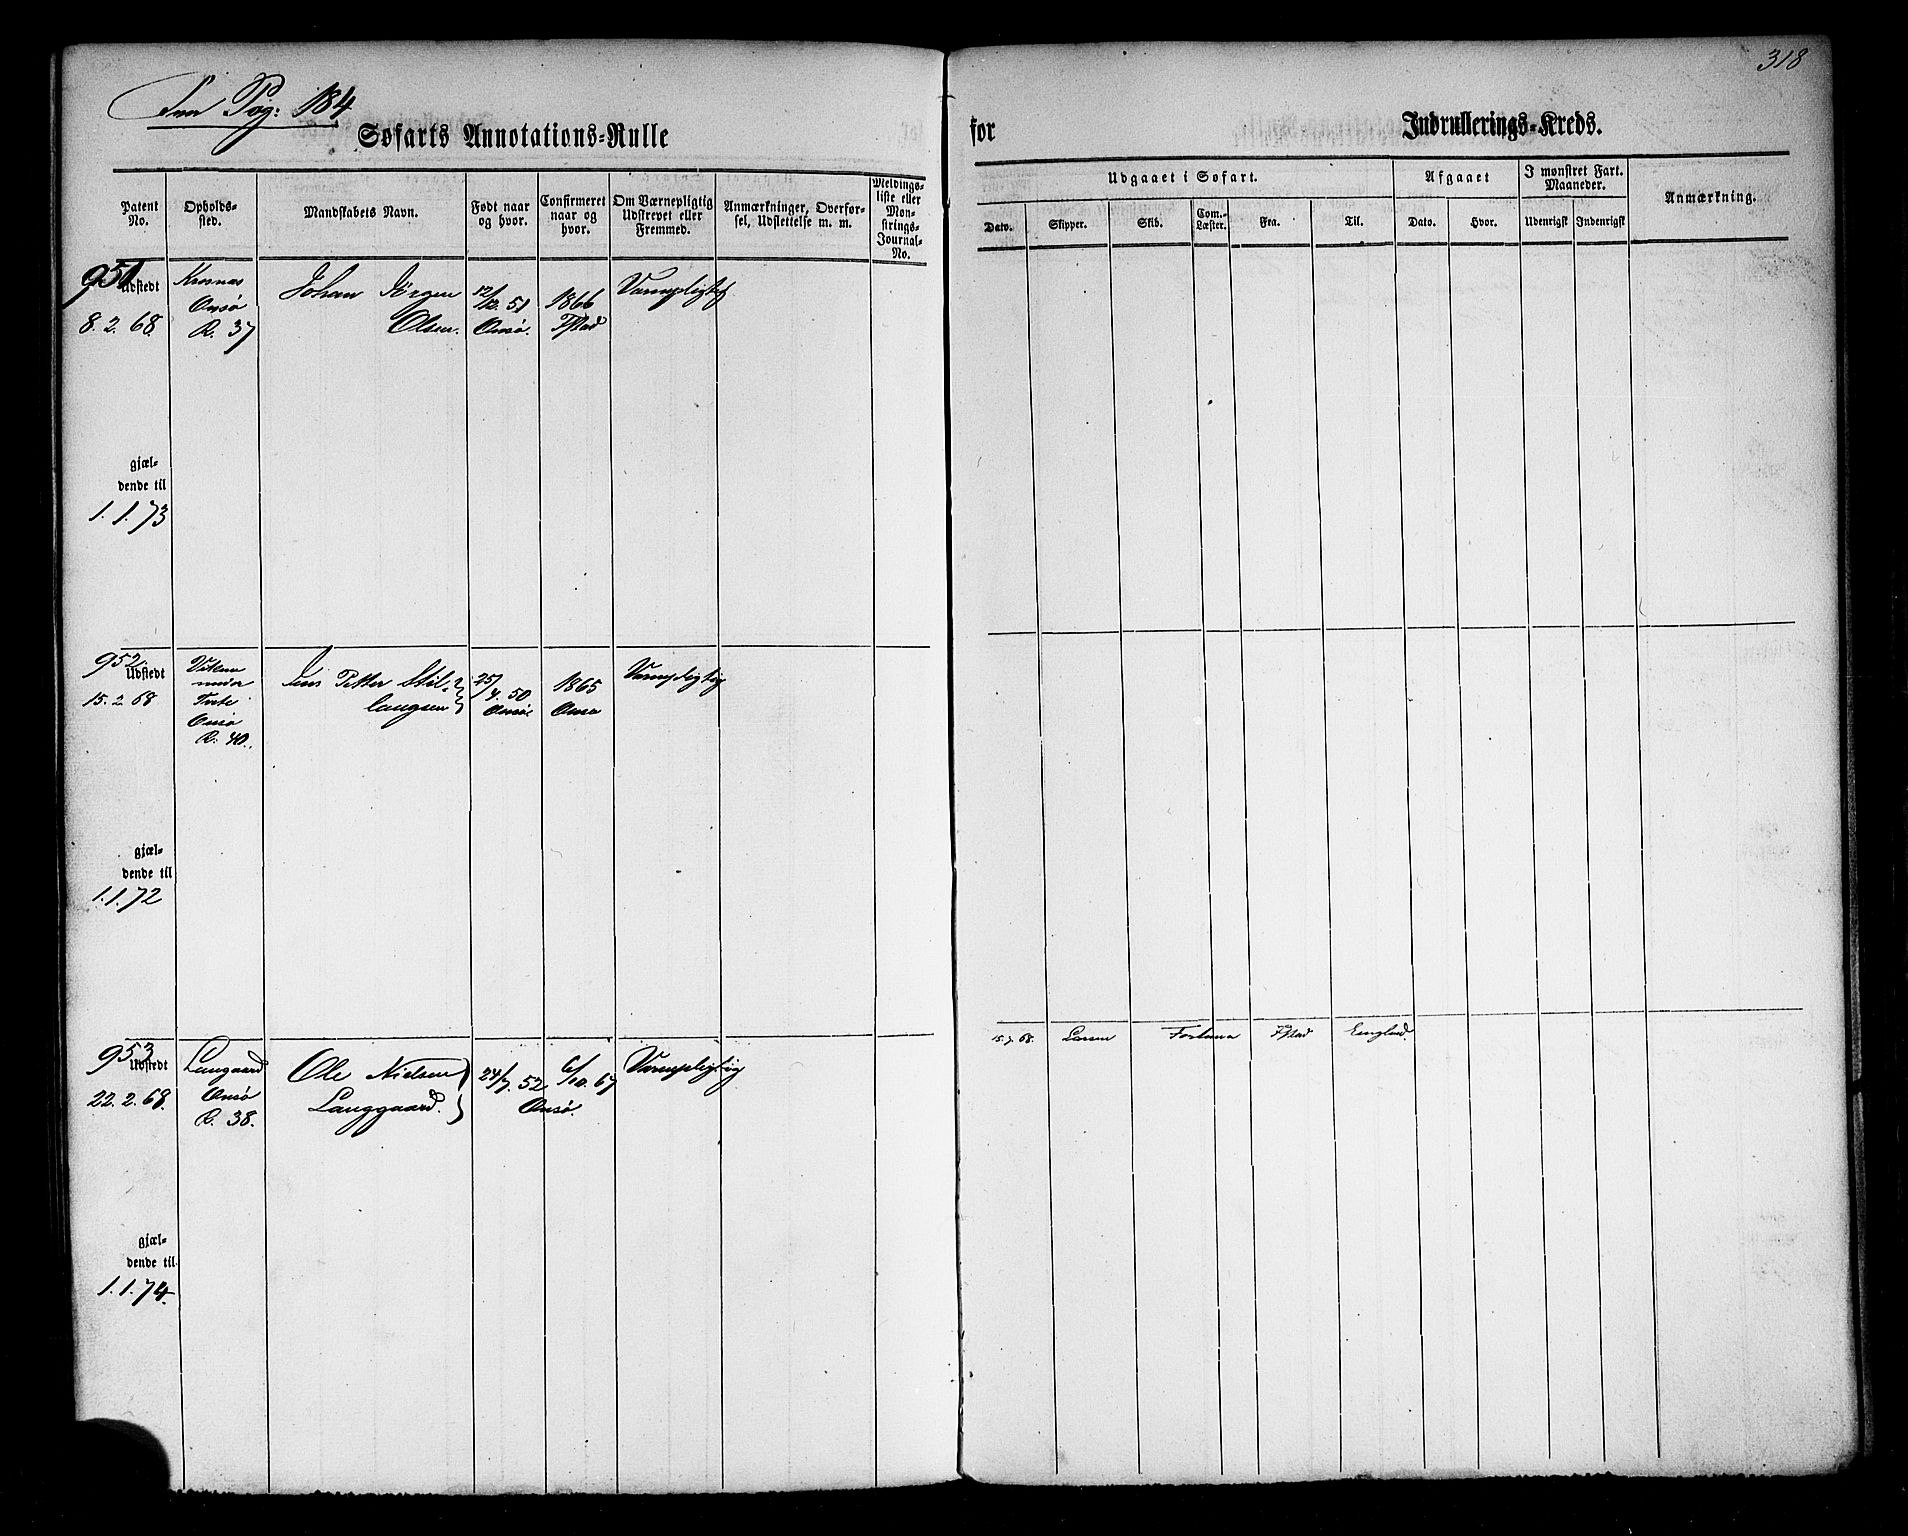 318
Pag: 184
Søfarts Annotations-Rulle
for
Indrullerings-Kreds.
Patent No.
Opholds-sted.
Mandskabets Navn.
Født naar og hvor.
Confirmeret naar og hvor.
Om Værnepligtig Udskrevet eller Fremmed.
Anmærkninger, Overførsel, Udslettelse m. m.
Meldings-liste eller Mønstrings-Journal-No.
Udgaaet i Søfart.
Dato.
Skipper.
Skib.
Com.-Læster.
Fra.
Til.
Afgaaet
Dato.
Hvor.
I mønstret Fart. Maaneder.
Udenrigsk
Indenrigsk
Anmærkning.
951
Udstedt
8. 2. 68
Krosnæs
Onsø
R. 37
Johan Jørgen
Olsen.
12/12. 51
Onsø.
1866
Fstad
Værnepligtig
gjæl-
dende til
1. 1. 73
952
Udstedt
15. 2. 68
under
Onsø
R. 40.
Jens Petter Stil-
laugsen
25/4. 50
Onsøe
1865
Onsø
Værnepligtig
gjæl-
dende til
1. 1. 72
953
Udstedt
22. 2. 68.
Langaard
Onsø
R. 38.
Ole Nielsen
Langgaard.
24/7. 52
6/10. 67
Onsø.
Værnepligtig
15. 7. 68.
Larsen
Fortuna
Fstad
England.
gjæl-
dende til
1. 1. 74.